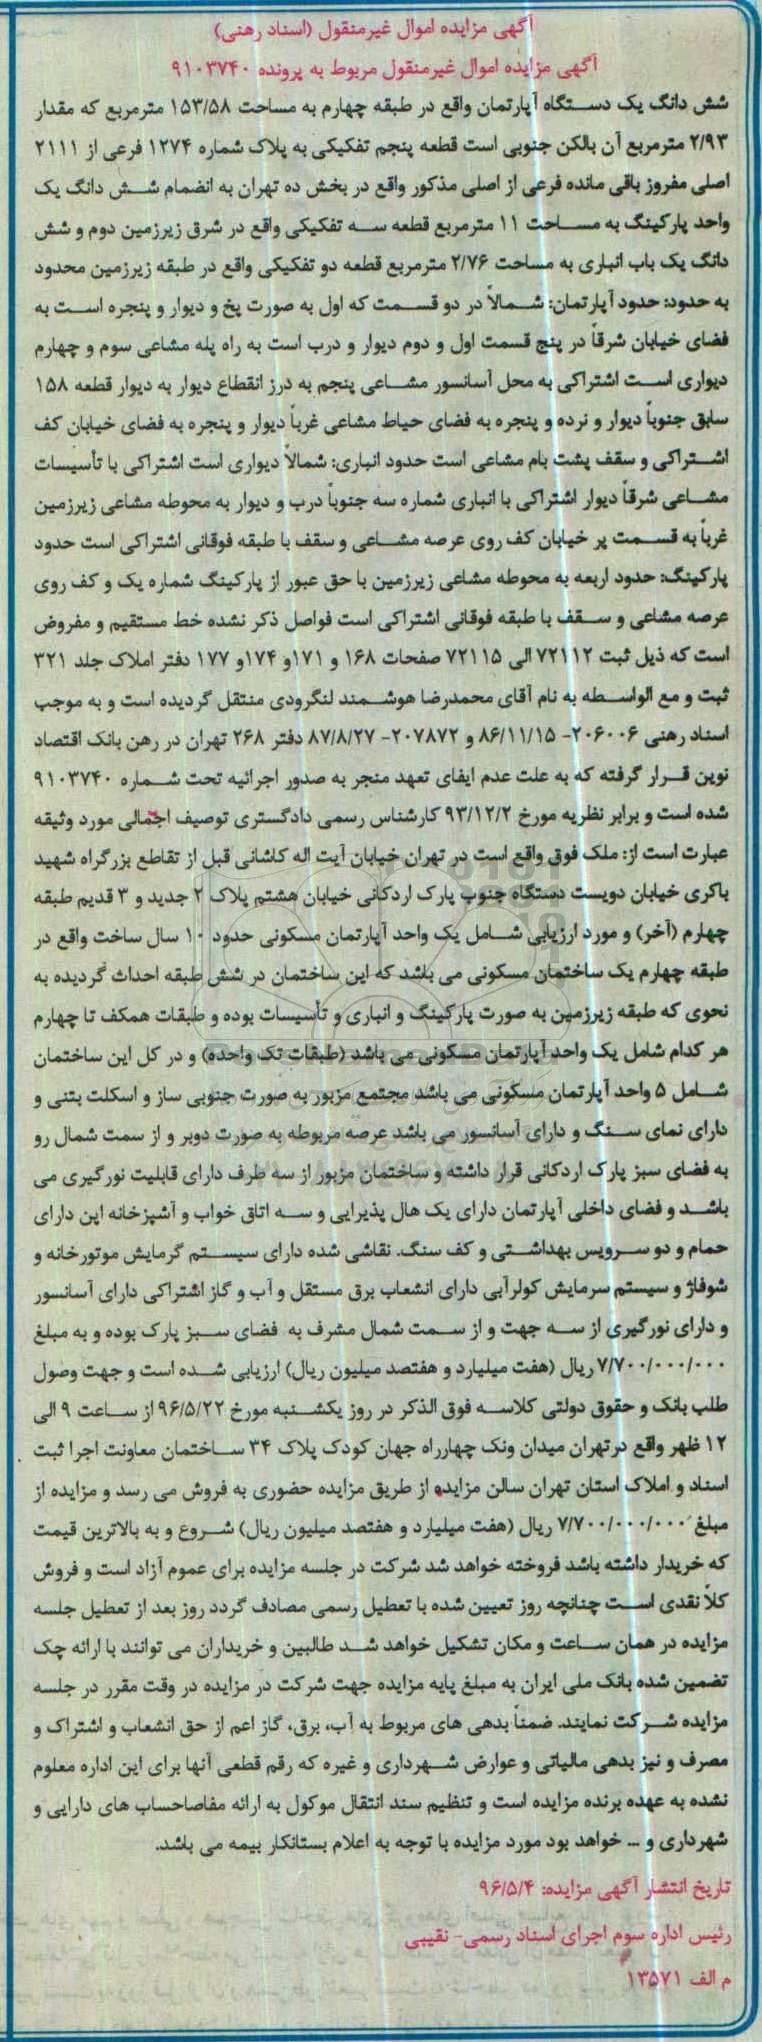 آگهی مزایده اموال غیرمنقول (اسناد رهنی)
آگهی مزایده اموال غیرمنقول مربوط به پرونده ۹۱۰۳۷۴۰
شش دانگ یک دستگاه آپارتمان واقع در طبقه چهارم به مساحت ۱۵۳/۵۸ مترمربع که مقدار
۲/۹۳ مترمربع آن بالکن جنوبی است قطعه پنجم تفکیکی به پلاک شماره ۱۲۷۴ فرعی از ۲۱۱۱
اصلی مفروز باقی مانده فرعی از اصلی مذکور واقع در بخش ده تهران به انضمام شش دانگ یک
واحد پارکینگ به مساحت ۱۱ مترمربع قطعه سه تفکیکی واقع در شرق زیرزمین دوم و شش
دانگ یک باب انباری به مساحت ۲/۷۶ مترمربع قطعه دو تفکیکی واقع در طبقه زیرزمین محدود
به حدود: حدود آپارتمان: شمالاً در دو قسمت که اول به صورت پخ و دیوار و پنجره است به
فضای خیابان شرقاً در پنج قسمت اول و دوم دیوار و درب است به راه پله مشاعی سوم و چهارم
دیواری است اشتراکی به محل آسانسور مشاعی پنجم به درز انقطاع دیوار به دیوار قطعه ۱۵۸
سابق جنوباً دیوار و نرده و پنجره به فضای حیاط مشاعی غرباً دیوار و پنجره به فضای خیابان کف
اشتراکی و سقف پشت بام مشاعی است حدود انباری: شمالاً دیواری است اشتراکی با تأسیسات
مشاعی شرقاً دیوار اشتراکی با انباری شماره سه جنوباً درب و دیوار به محوطه مشاعی زیرزمین
غرباً به قسمت پر خیابان کف روی عرصه مشاعی و سقف با طبقه فوقانی اشتراکی است حدود
پارکینگ: حدود اربعه به محوطه مشاعی زیرزمین با حق عبور از پارکینگ شماره یک و کف روی
عرصه مشاعی و سقف با طبقه فوقانی اشتراکی است فواصل ذکر نشده خط مستقیم و مفروض
است که ذیل ثبت ۷۲۱۱۲ الی ۷۲۱۱۵ صفحات ۱۶۸ و ۱۷۱و ۱۷۴و ۱۷۷ دفتر املاک جلد ۳۲۱
ثبت و مع الواسطه به نام آقای محمدرضا هوشمند لنگرودی منتقل گردیده است و به موجب
اسناد رهنی ۲۰۶۰۰۶- ۸۶/۱۱/۱۵ و ۲۰۷۸۷۲- ۸۷/۸/۲۷ دفتر ۲۶۸ تهران در رهن بانک اقتصاد
نوین قرار گرفته که به علت عدم ایفای تعهد منجر به صدور اجرائیه تحت شماره ۹۱۰۳۷۴۰
شده است و برابر نظریه مورخ ۹۳/۱۲/۲ کارشناس رسمی دادگستری توصیف اجمالی مورد وثیقه
عبارت است از: ملک فوق واقع است در تهران خیابان آیت اله کاشانی قبل از تقاطع بزرگراه شهید
باکری خیابان دویست دستگاه جنوب پارک اردکانی خیابان هشتم پلاک ۲ جدید و ۳ قدیم طبقه
چهارم (آخر) و مورد ارزیابی شامل یک واحد آپارتمان مسکونی حدود ۱۰ سال ساخت واقع در
طبقه چهارم یک ساختمان مسکونی می باشد که این ساختمان در شش طبقه احداث گردیده به
نحوی که طبقه زیرزمین به صورت پارکینگ و انباری و تأسیسات بوده و طبقات همکف تا چهارم
هر کدام شامل یک واحد آپارتمان مسکونی می باشد (طبقات تک واحده) و در کل این ساختمان
شامل ۵ واحد آپارتمان مسکونی می باشد مجتمع مزبور به صورت جنوبی ساز و اسکلت بتنی و
دارای نمای سنگ و دارای آسانسور می باشد عرصه مربوطه به صورت دوبر و از سمت شمال رو
به فضای سبز پارک اردکانی قرار داشته و ساختمان مزبور از سه طرف دارای قابلیت نورگیری می
باشد و فضای داخلی آپارتمان دارای یک هال پذیرایی و سه اتاق خواب و آشپزخانه اپن دارای
حمام و دو سرویس بهداشتی و کف سنگ. نقاشی شده دارای سیستم گرمایش موتورخانه و
شوفاژ و سیستم سرمایش کولرآبی دارای انشعاب برق مستقل و آب و گاز اشتراکی دارای آسانسور
و دارای نورگیری از سه جهت و از سمت شمال مشرف به فضای سبز پارک بوده و به مبلغ
۷/۷۰۰/۰۰۰/۰۰۰ ریال (هفت میلیارد و هفتصد میلیون ریال) ارزیابی شده است و جهت وصول
طلب بانک و حقوق دولتی کلاسه فوق الذکر در روز یکشنبه مورخ ۹۶/۵/۲۲ از ساعت ۹ الی
۱۲ ظهر واقع درتهران میدان ونک چهارراه جهان کودک پلاک ۳۴ ساختمان معاونت اجرا ثبت
اسناد و املاک استان تهران سالن مزایده از طریق مزایده حضوری به فروش می رسد و مزایده از
مبلغ ۷/۷۰۰/۰۰۰/۰۰۰ ریال (هفت میلیارد و هفتصد میلیون ریال) شروع و به بالاترین قیمت
که خریدار داشته باشد فروخته خواهد شد شرکت در جلسه مزایده برای عموم آزاد است و فروش
کلاً نقدی است چنانچه روز تعیین شده با تعطیل رسمی مصادف گردد روز بعد از تعطیل جلسه
مزایده در همان ساعت و مکان تشکیل خواهد شد طالبین و خریداران می توانند با ارائه چک
تضمین شده بانک ملی ایران به مبلغ پایه مزایده جهت شرکت در مزایده در وقت مقرر در جلسه
مزایده شرکت نمایند. ضمناً بدهی های مربوط به آب، برق، گاز اعم از حق انشعاب و اشتراک و
مصرف و نیز بدهی مالیاتی و عوارض شهرداری و غیره که رقم قطعی آنها برای این اداره معلوم
نشده به عهده برنده مزایده است و تنظیم سند انتقال موکول به ارائه مفاصاحساب های دارایی و
شهرداری و ... خواهد بود مورد مزایده با توجه به اعلام بستانکار بیمه می باشد.
تاریخ انتشار آگهی مزایده: ۹۶/۵/۴
رئیس اداره سوم اجرای اسناد رسمی- نقیبی
م الف ۱۳۵۷۱